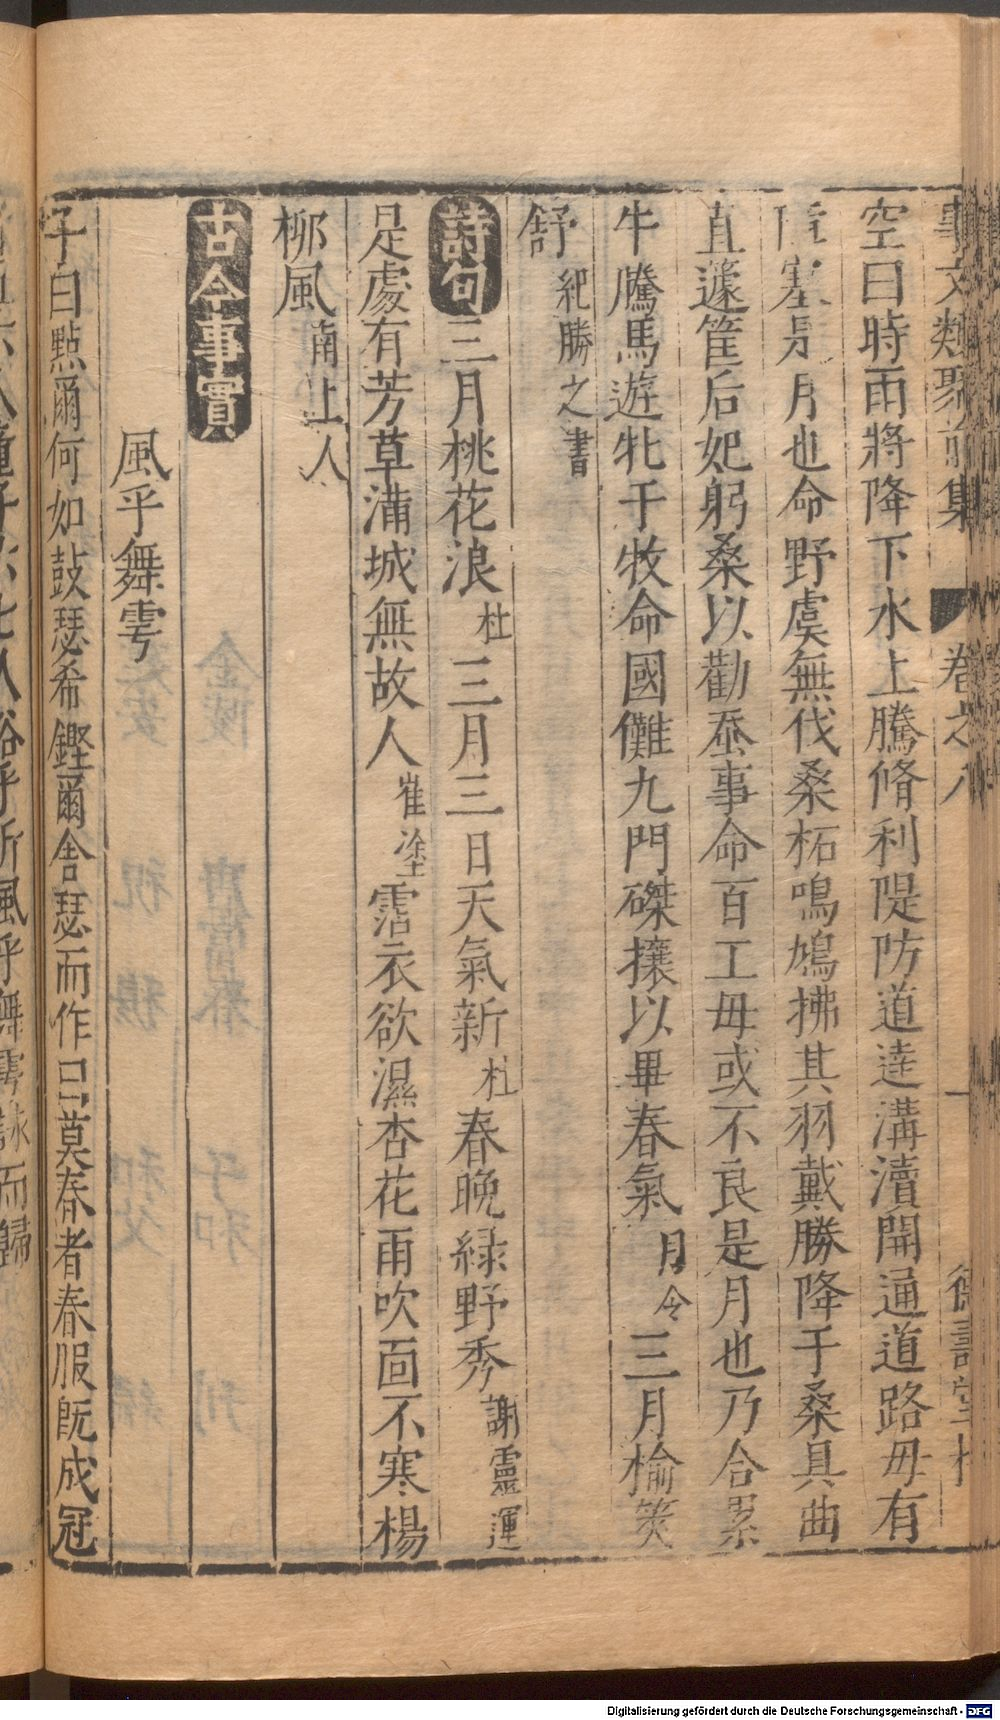 事文類聚前集 卷之八 一 德壽堂梓
空曰時雨將降下水上騰脩利隄防道達溝瀆開通道路毋有
障塞是月也命野虞無伐桑柘鳴鳩拂其羽戴勝降于桑具曲
直蘧筐后妃躬桑以勸蚕事命百工毋或不良是月也乃合累
牛騰馬遊牝于牧命國儺九門磔攘以畢春氣月令三月榆莢
舒紀勝之書
詩句三月桃花浪杜三月三日天氣新杜春晚綠野秀謝靈運
是處有芳草滿城無故人崔塗霑衣欲濕杏花雨吹面不寒楊
柳風南上人
古今事實
風乎舞雩
子曰點爾何如鼓瑟希鏗爾舍瑟而作曰莫春者春服既成冠
童子六七人浴乎沂風乎舞雩詠而歸
Digitalisierung gefördert durch die Deutsche Forschungsgemeinschaft - DFG